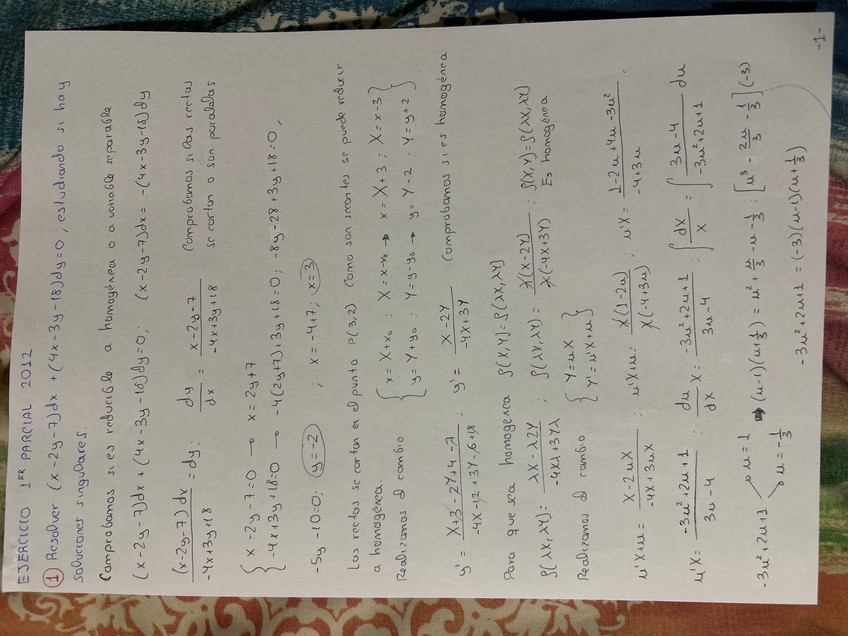 EJERCICIO 1ER PARCIAL 2012
① Resolver (x-2y-7)dx + (4x-3y-18)dy=0, estudiando si hay
soluciones singulares.
Comprobamos si es reducible a homogénea o a variable separable
(x-2y-7)dx+(4x-3y-18)dy=0; (x-2y-7)dx = -(4x-3y-18)dy
(x-2y-7)dx / -4x+3y+18 = dy; dy/dx = x-2y-7 / -4x+3y+18 Comprobamos si las rectas
se cortan o son paralelas
{ x-2y-7=0 → x=2y+7
-4x+3y+18=0 → -4(2y+7)+3y+18=0; -8y-28+3y+18=0;
-5y-10=0; y=-2 ; x=-4+7; x=3
Las rectas se cortan en el punto P(3,2) como son secantes se puede reducir
a homogénea.
Realizamos el cambio { x=X+x₀ ; X=x-x₀ → x=X+3 ; X=x-3
y=Y+y₀ ; Y=y-y₀ → y=Y-2 ; Y=y+2 }
y' = X+3-2Y+4-7 / -4X-12+3Y-6+18 ; y' = X-2Y / -4X+3Y Comprobamos si es homogénea
Para que sea homogénea f(X,Y)=f(λX,λY)
f(λX,λY) = λX-λ2Y / -4Xλ+3Yλ ; f(λX,λY) = λ(X-2Y) / λ(-4X+3Y) ; f(X,Y)=f(λX,λY)
Es homogénea
Realizamos el cambio { Y=uX
Y'=u'X+u }
u'X+u = X-2uX / -4X+3uX ; u'X+u = X(1-2u) / X(-4+3u) ; u'X = 1-2u+4u-3u² / -4+3u ;
u'X = -3u²+2u+1 / 3u-4 ; du/dx X = -3u²+2u+1 / 3u-4 ; ∫ dX/X = ∫ 3u-4 / -3u²+2u+1 du
-3u²+2u+1 → u=1
→ u=-1/3 ⇒ (u-1)(u+1/3) = u²+u/3-u-1/3 ; [u²-2u/3-1/3](-3)
-3u²+2u+1 = (-3)(u-1)(u+1/3)
-1-